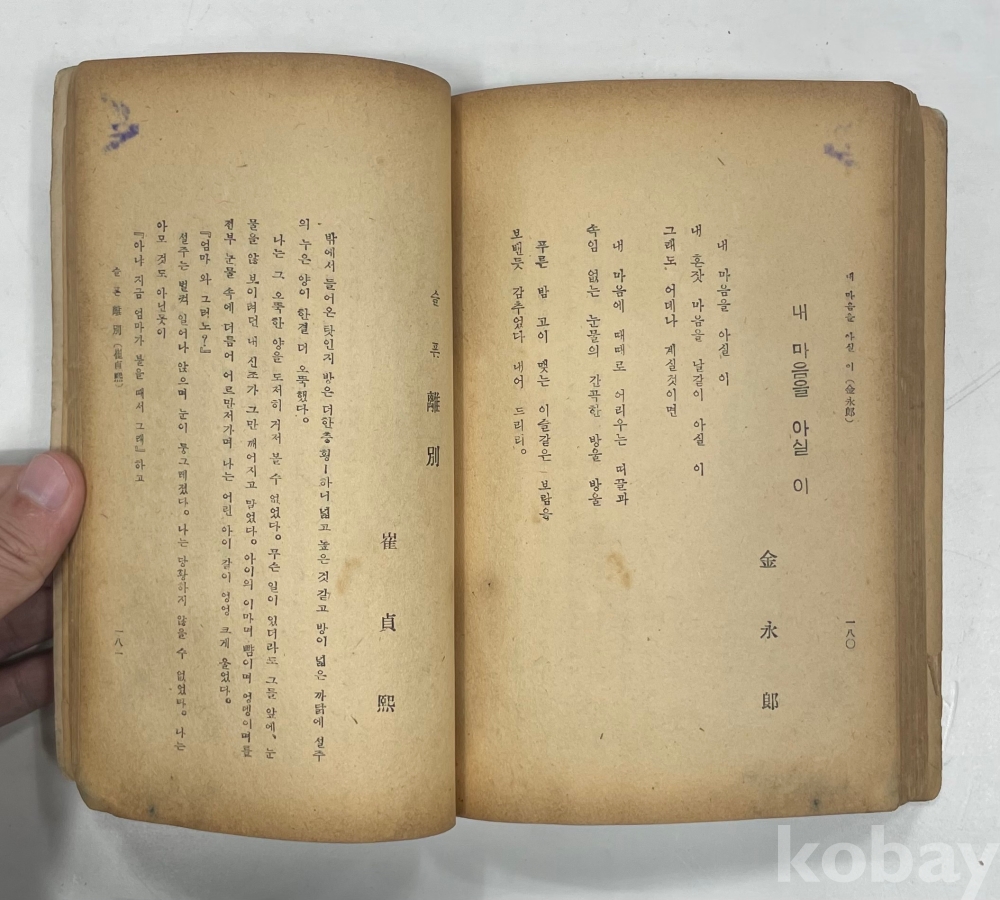 내 마음을 아실 이 (金永郎)
一八〇
내 마음을 아실 이
金永郎
내 마음을 아실 이
내 혼잣 마음을 날같이 아실 이
그래도 어데나 게실것이면
내 마음에 때때로 어리우는 띠끌과
속임 없는 눈물의 간곡한 방울 방울
푸른 밤 고이 맺는 이슬같은 보람을
보밴듯 감추었다 내어 드리리。
슬픈 離別
崔貞熙
밖에서 들어온 탓인지 방은 더한층 휑—하니 넓고 높은 것 같고 방이 넓은 까닭에 설주
의 누은 양이 한결 더 오뚝했다。
나는 그 오뚝한 양을 도저히 거저 볼 수 없었다。 무슨 일이 있더라도 그들 앞에、 눈
물을 않 보이려던 내 신조가 그만 깨어지고 말었다。 아이의 이마며 뺨이며 엉뎅이며를
전부 눈물 속에 더듬어 어르만저가며 나는 어린 아이 같이 엉엉 크게 울었다。
『엄마 와 그러노?』
설주는 벌떡 일어나 앉으며 눈이 퉁그레졌다。 나는 당황하지 않을 수 없었다。 나는
아모 것도 아닌듯이
『아냐 지금 엄마가 불을 때서 그래』하고
슬픈 離別 (崔貞熙)
一八一
kobay